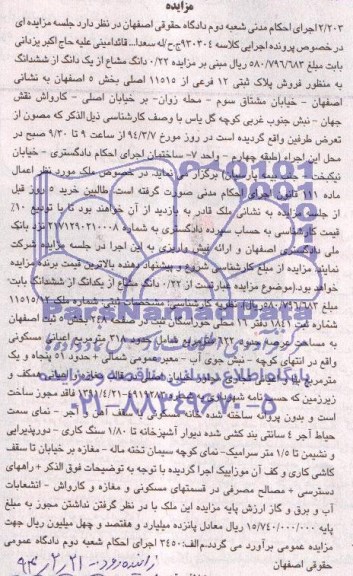 مزایده
۲/۲۰۳ اجرای احکام مدنی شعبه دوم دادگاه حقوقی اصفهان در نظر دارد جلسه مزایده ای
در خصوص پرونده اجرایی کلاسه ۹۳۰۳۰۴ج.ح/له سعدا... قائدامینی علیه حاج اکبر یزدانی
بابت مبلغ ۵۸۰/۷۹۶/۶۸۳ ریال مبنی بر مزایده ۰/۲۲ دانگ مشاع از یک دانگ از ششدانگ
به منظور فروش پلاک ثبتی ۱۲ فرعی از ۱۱۵۱۵ اصلی بخش ۵ اصفهان به نشانی
اصفهان - خیابان مشتاق سوم - محله زوان- بر خیابان اصلی - کارواش نقش
جهان - نبش جنوب غربی کوچه گل یاس با وصف کارشناسی ذیل‌الذکر که مصون از
تعرض طرفین واقع گردیده است در روز مورخ ۹۴/۳/۷ از ساعت ۹ تا ۹/۳۰ صبح در
محل این اجراء (طبقه چهارم - واحد ۷- ساختمان اجرای احکام دادگستری - خیابان
نیکبخت - بیمه پارسیان) برگزار نماید. در خصوص ملک مورد نظر اعمال
ماده ۱۱۱ قانون اجرای احکام مدنی صورت گرفته است. طالبین خرید ۵ روز قبل
از جلسه مزایده به نشانی ملک قادر به بازدید از آن خواهند بود تا با تودیع ۱۰٪
قیمت کارشناسی به حساب سپرده دادگستری به شماره ۲۱۷۱۲۹۰۲۱۰۰۰۸ نزد بانک
ملی دادگستری اصفهان و ارائه فیش واریزی به این اجرا در جلسه مزایده شرکت
نمایند. مزایده از مبلغ کارشناسی شروع و پیشنهاد دهنده بالاترین قیمت برنده مزایده
خواهد بود.(موضوع مزایده عبارتست از ۰/۲۲ دانگ مشاع از یکدانگ از ششدانگ بابت
۵۸۰/۷۹۶/۶۸۳ ریال) نظریه کارشناسی: مشخصات ثبتی: شماره ملک ۱۱۵۱۵/۱۲
شماره ثبت ۱۸۴۱ دفتر ۱۱ محلی خوراسگان ثبت در صفحه بخش ۵ ثبت اصفهان
به مساحت عرصه حدود ۳۲۲ مترمربع شامل حدود ۲۱۸ مترمربع اعیانی مسکونی
واقع در انتهای کوچه - نبش جوی آب - معبر عمومی شمالی + حدود ۵۱ پنجاه و یک
مترمربع
زیرزمین که حسب‌نامه شهرداری به شماره ۴۹۱۹۲۸۳-۱۳۹۱/۴/۲۱ فاقد مجوز ساخت
است و بدون پروانه ساخته شده خانه مسکونی سقف آهن و آجر - نمای سمت
حیاط آجر ۴ سانتی بند کشی شده دیوار آشپزخانه تا ۱/۸۰ سنگ کاری - دورپذیرایی
و نشیمن تا ۱/۵ متر سرامیک- نمای کوچه سیمان تخته ماله - مغازه بر خیابان تا سقف
کاشی کاری و کف آن موزاییک اجرا گردیده با توجه به توضیحات فوق الذکر + راههای
دسترسی + مصالح مصرفی در قسمتهای مسکونی و مغازه و کارواش - انشعابات
آب و برق و گاز ارزش پایه مزایده این ملک با در نظر گرفتن نداشتن مجوز به مبلغ
پایه ۱۵/۷۴۰/۰۰۰/۰۰۰ ریال معادل پانزده میلیارد و هفتصد و چهل میلیون ریال جهت
مزایده عمومی برآورد می گردد.م‌الف:۳۴۵۰ اجرای احکام شعبه دوم دادگاه عمومی
حقوقی اصفهان
زاینده رود - ۹۴/۲/۲۱
ParsNamadData
پایگاه اطلاع رسانی مناقصه و مزایده
۰۲۱-۸۸۳۴۹۶۷۰-۵